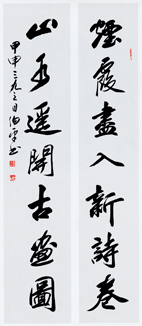 煙霞盡入新詩卷
山水遥開古畫圖
甲申三九之日伯宇书